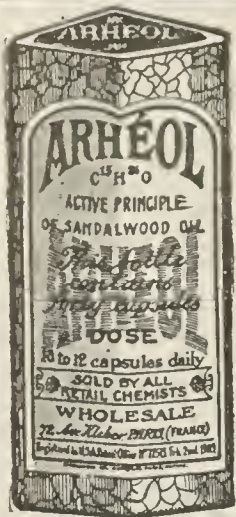 ARHEOL
ARHÉOL
C¹⁵H²⁶O
ACTIVE PRINCIPLE
OF SANDALWOOD OIL
This bottle
contains
capsules
DOSE
10 to 12 capsules daily
SOLD BY ALL
RETAIL CHEMISTS
WHOLESALE
72 Ave Kleber PARIS (FRANCE)